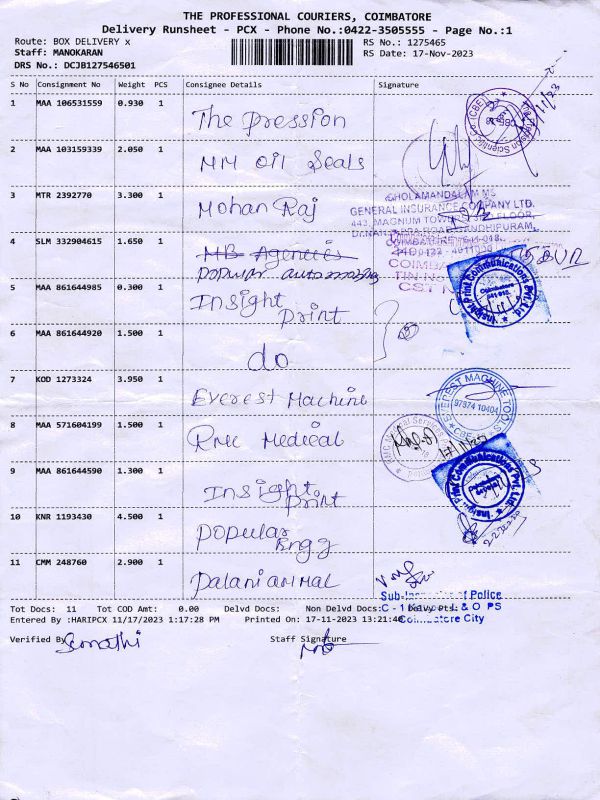 THE PROFESSIONAL COURIERS, COIMBATORE
Delivery Runsheet - PCX - Phone No.:0422-3505555 - Page No.:1
Route: BOX DELIVERY x RS No.: 1275465
Staff: MANOKARAN RS Date: 17-Nov-2023
DRS No.: DCJB127546501
S No Consignment No Weight PCS Consignee Details Signature
1 MAA 106531559 0.930 1 The Pression
2 MAA 103159339 2.050 1 MM Oil Seals
3 MTR 2392770 3.300 1 Mohan Raj
CHOLAMANDALAM MS
GENERAL INSURANCE COMPANY LTD.
4 SLM 332904615 1.650 1 MB Agencies
Popular
5 MAA 861644985 0.300 1 Insight
Print
Insight Print Communications Pvt. Ltd.
Coimbatore
6 MAA 861644920 1.500 1 do
7 KOD 1273324 3.950 1 Everest Machine
EVEREST MACHINE TOOLS
97874 10404
CBE
8 MAA 571604199 1.500 1 RMC Medical
9 MAA 861644590 1.300 1 Insight
Print
Print Communications Pvt. Ltd.
10 KNR 1193430 4.500 1 Popular
Engg
11 CMM 248760 2.900 1 Palaniammal
Sub-Inspector of Police
Tot Docs: 11 Tot COD Amt: 0.00 Delvd Docs: Non Delvd Docs: Delvy Pts.:
L & O PS
Entered By :HARIPCX 11/17/2023 1:17:28 PM Printed On: 17-11-2023 13:21:40
Coimbatore City
Verified By Staff Signature
Sumathi